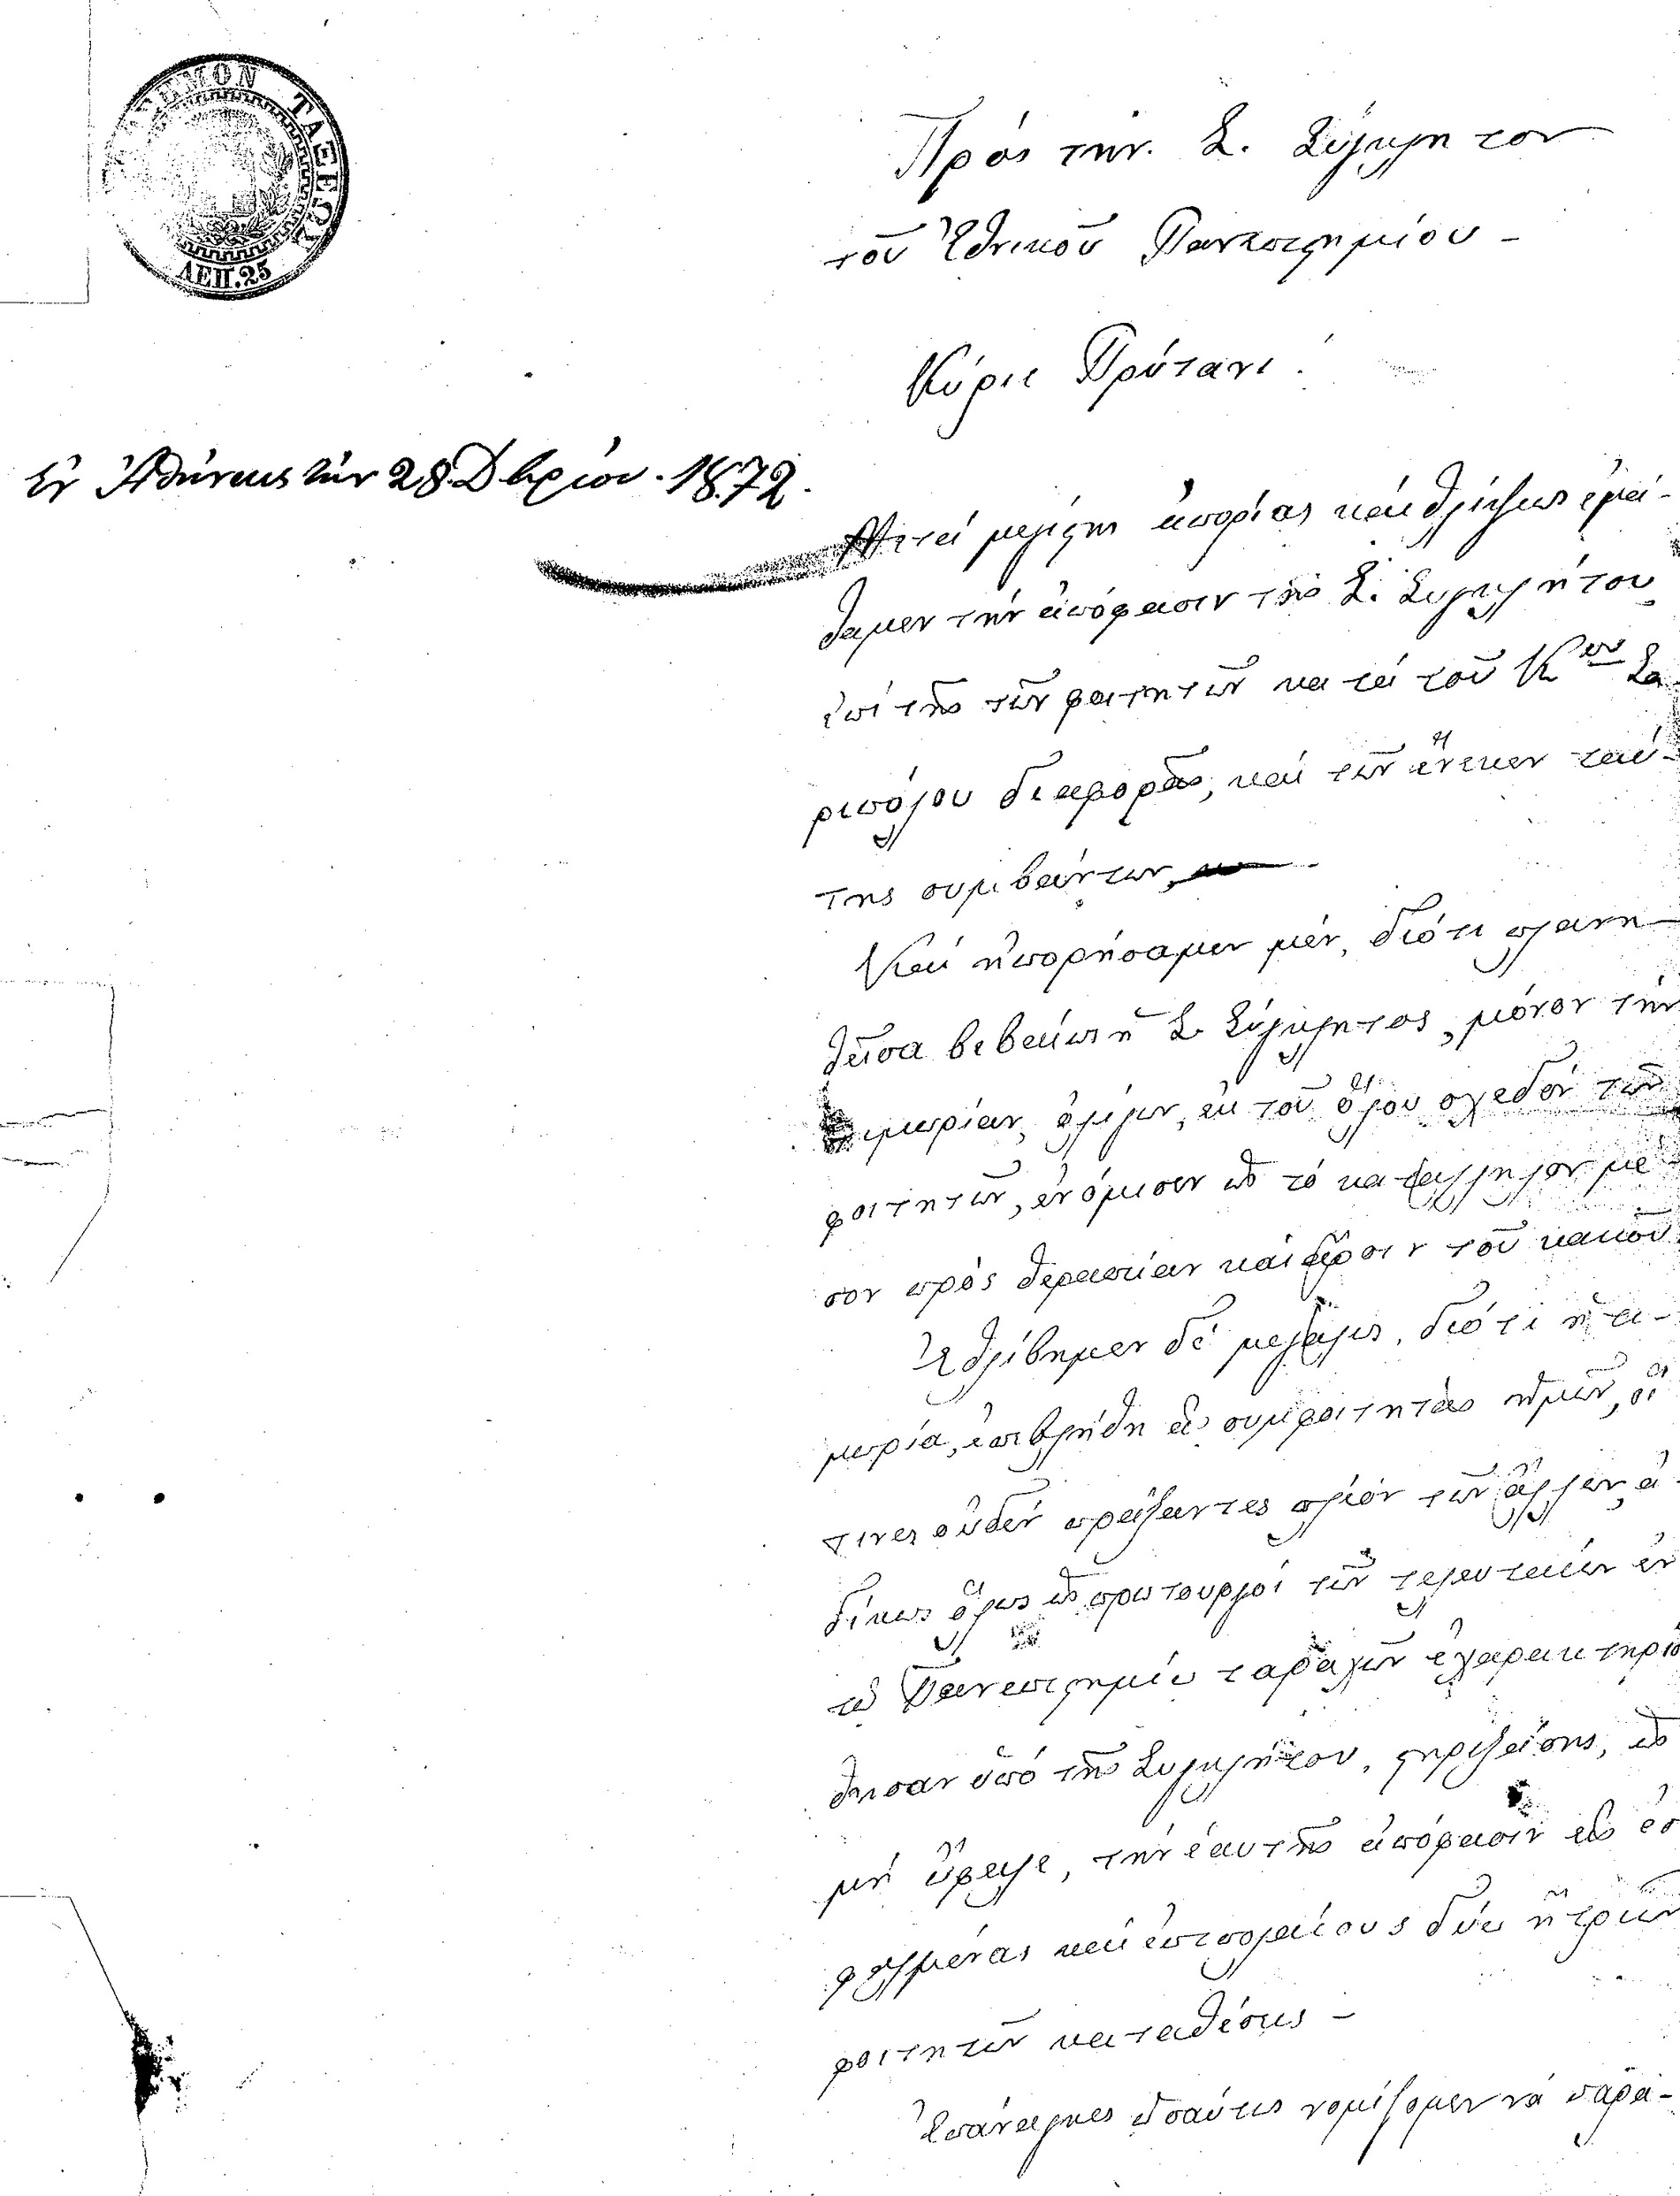 ΤΑΞΕΩΝ
ΛΕΠ. 25
Πρὸς τὴν Σ. Σύγκλητον
τοῦ Ἐθνικοῦ Πανεπιστημίου -
Κύριε Πρύτανι!
Ἐν Ἀθήναις τὴν 28 Δβρίου. 1872.
Μετὰ μεγίστης ἀπορίας καὶ θλίψεως ἐμά-
θαμεν τὴν ἀπόφασιν τῆς Σ. Συγκλήτου
ἐπὶ τῆς τῶν φοιτητῶν κατὰ τοῦ Κου Σα-
ριπόλου διαφορᾶς, καὶ τῶν ἕνεκεν ταύ-
της συμβάντων,
Καὶ ἠπορήσαμεν μὲν, διότι πλανη-
θεῖσα βεβαίως ἡ Σ. Σύγκλητος, μόνον τὴν
τιμωρίαν, ὀλίγων, ἐκ τοῦ ὅλου σχεδὸν τῶν
φοιτητῶν, ἐνόμισεν ὡς τὸ κατάλληλον μέ-
σον πρὸς θεραπείαν καὶ ἄρσιν τοῦ κακοῦ
Ἐθλίβημεν δὲ μεγάλως, διότι ἡ τι-
μωρία, ἐπεβλήθη εἰς συμφοιτητὰς ἡμῶν, οἵ
τινες οὐδὲν πράξαντες πλέον τῶν ἄλλων, ἀ-
δίκως ὅλως ὡς πρωτουργοὶ τῶν τελευταίων ἐν
τῷ Πανεπιστημίῳ ταραχῶν ἐχαρακτηρίσ
θησαν ὑπὸ τῆς Συγκλήτου, στηριξάσης, ὡς
μὴ ὤφειλε, τὴν ἑαυτῆς ἀπόφασιν εἰς ἐσ
φαλμένας καὶ ἐπιπολαίους δύω ἢ τριῶν
φοιτητῶν καταθέσεις -
Ἐπάναγκες ὡσαύτως νομίζομεν νὰ παρα-